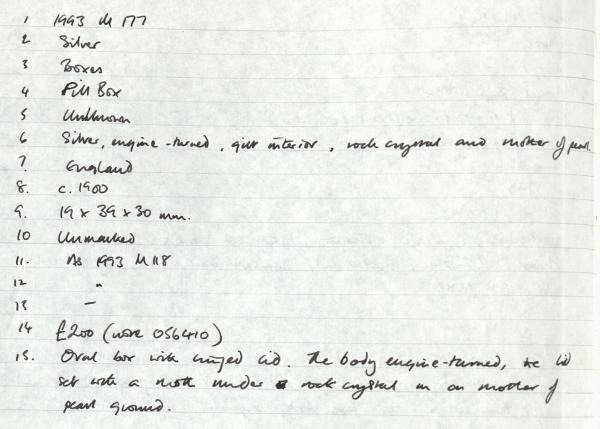 1 1993 M 177
2 Silver
3 Boxes
4 Pill Box
5 Unknown
6 Silver, engine-turned, gilt interior, rock crystal and mother of pearl.
7. England
8. c. 1900
9. 19 x 39 x 30 mm.
10 Unmarked
11. As 1993 M 118
12 "
13 —
14 £200 (work 056410)
15. Oval box with hinged lid. The body engine-turned, the lid
set with a moth under rock crystal on a mother of
pearl ground.